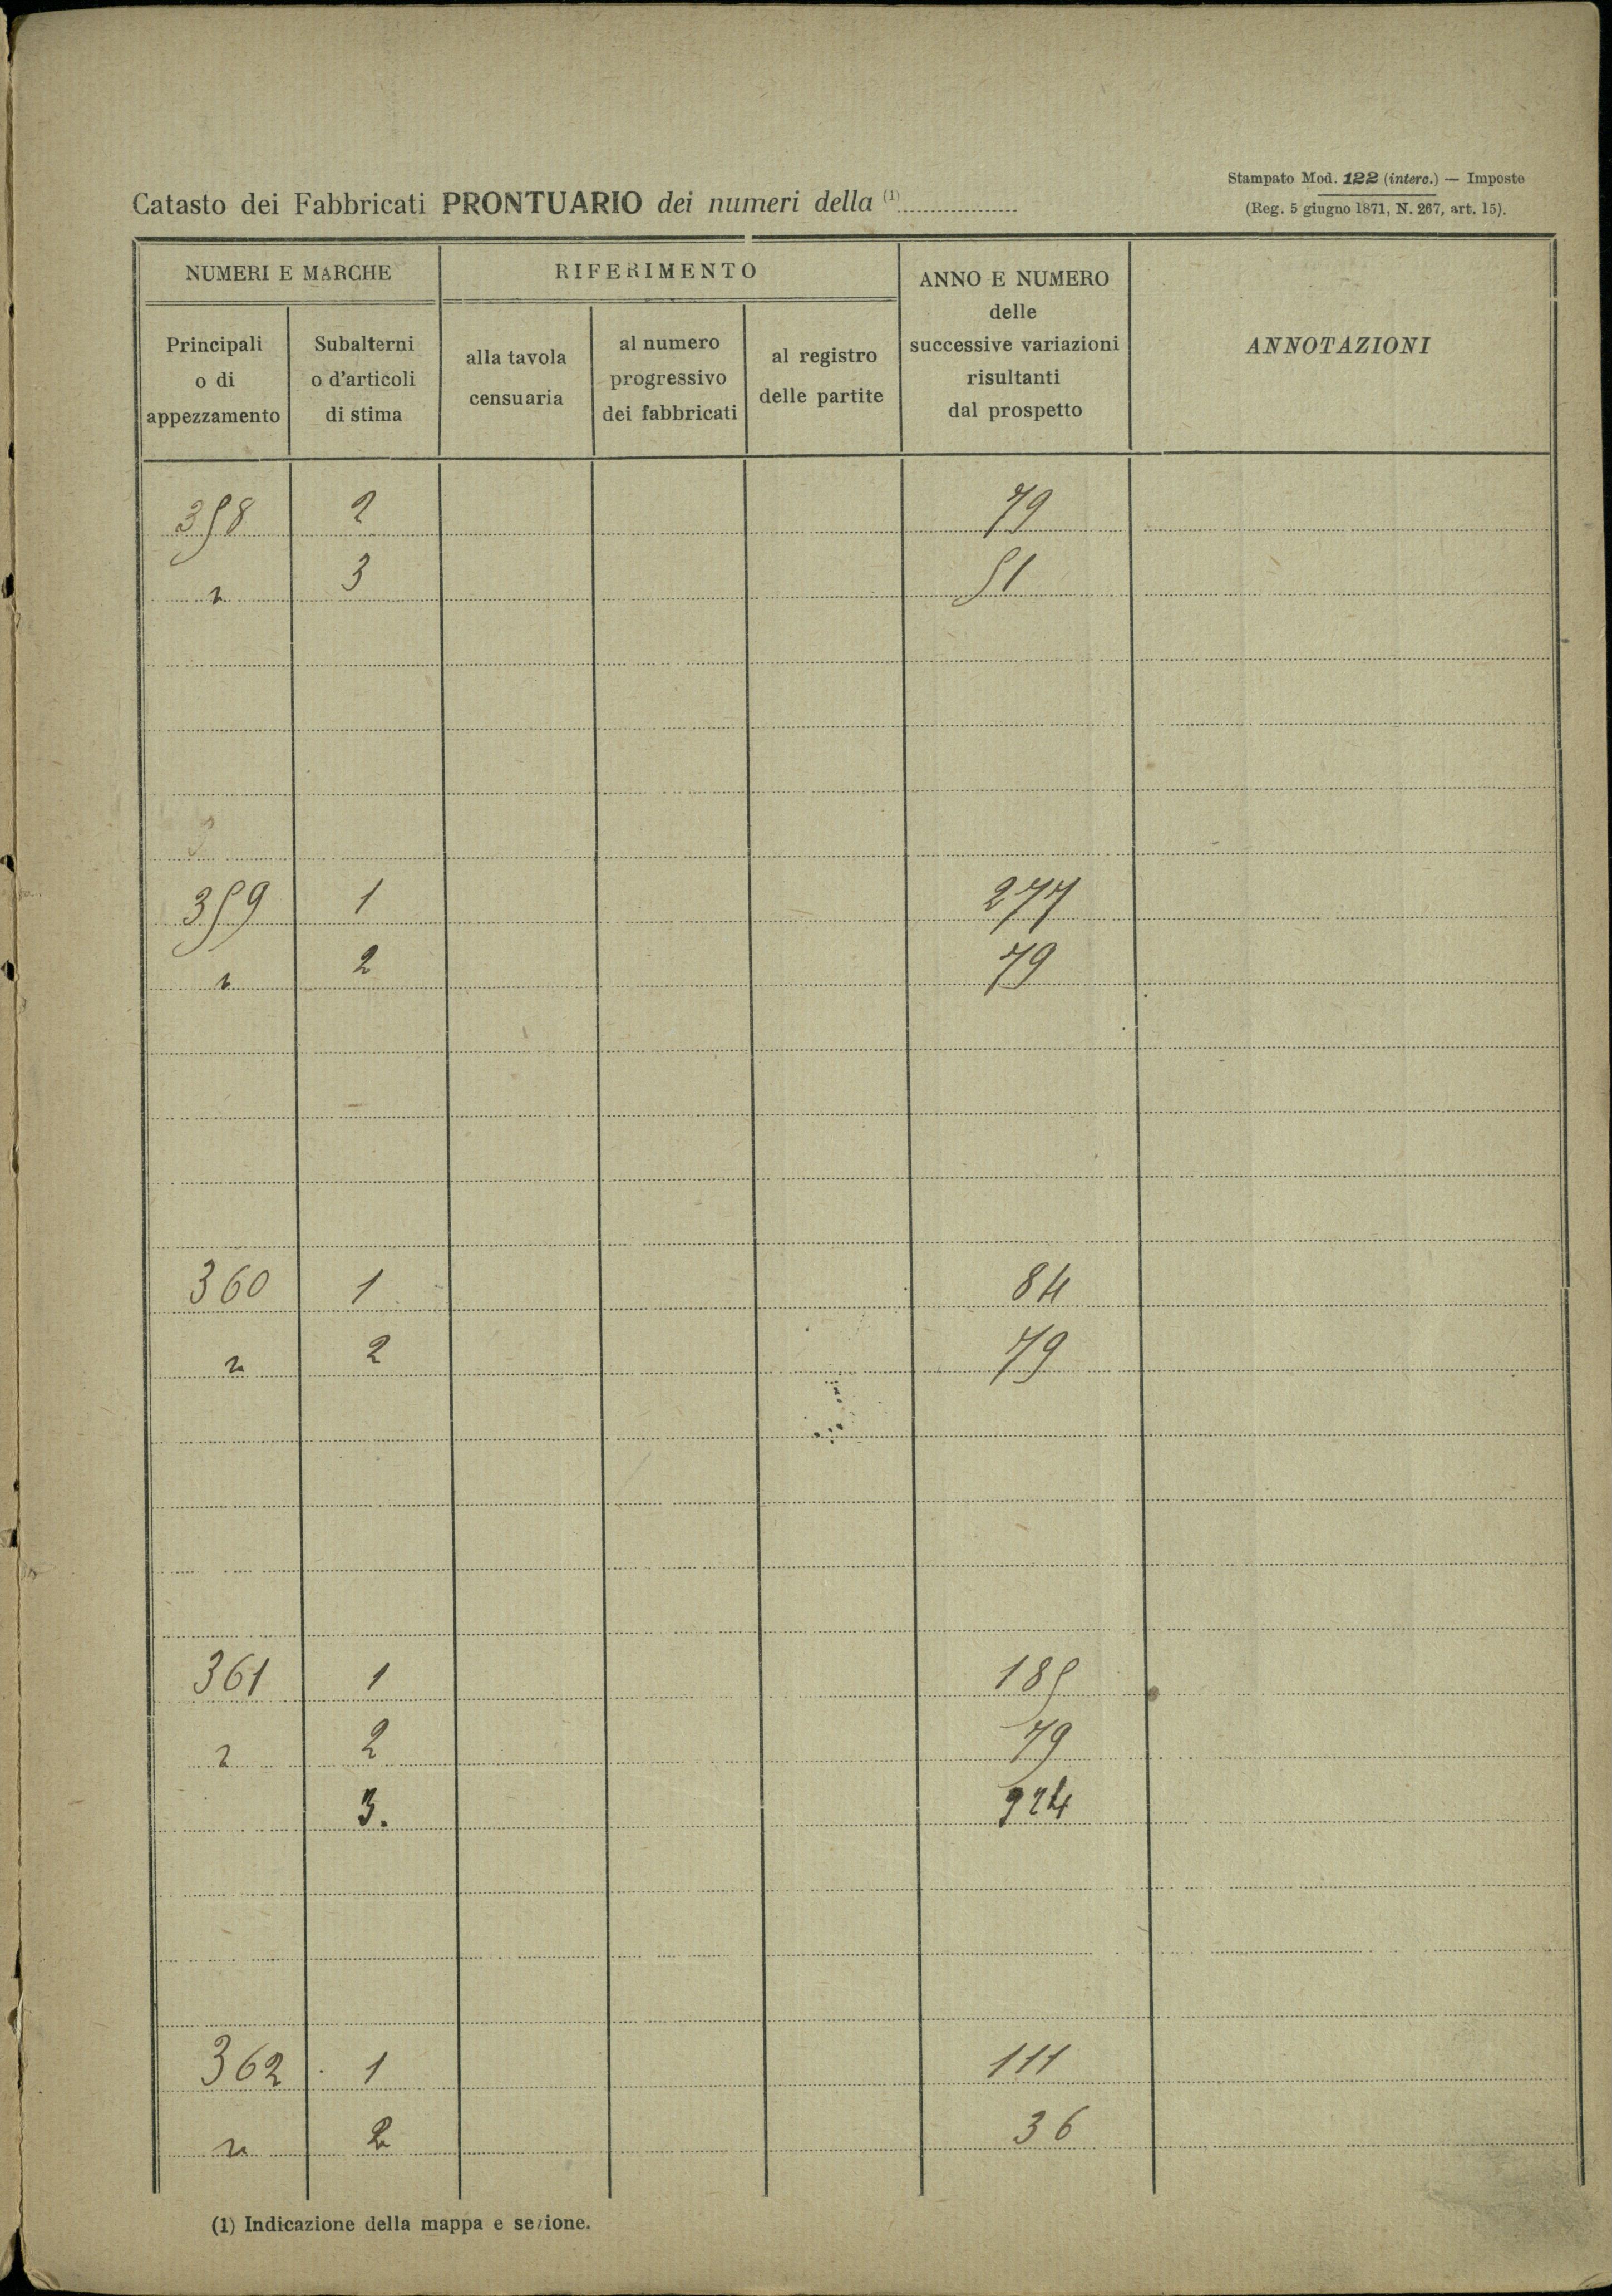 Stampato Mod. 122 (interc.) — Imposte
(Reg. 5 giugno 1871, N. 267, art. 15).
Catasto dei Fabbricati PRONTUARIO dei numeri della (1)
NUMERI E MARCHE RIFERIMENTO ANNO E NUMERO delle successive variazioni risultanti dal prospetto ANNOTAZIONI
Principali o di appezzamento Subalterni o d'articoli di stima alla tavola censuaria al numero progressivo dei fabbricati al registro delle partite
358 2 79
" 3 51
359 1 277
" 2 79
360 1 84
" 2 79
361 1 185
" 2 79
3. 924
362 1 111
" 2 36
(1) Indicazione della mappa e sezione.